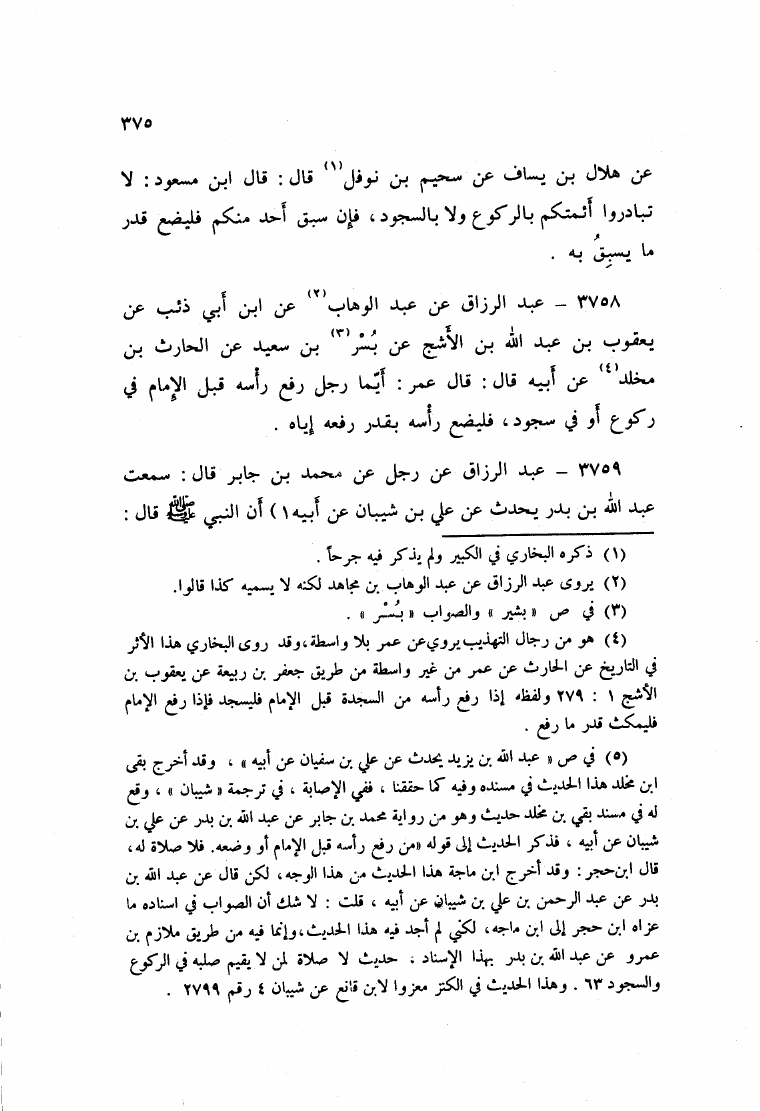 ٣٧٥
عن هلال بن يساف عن سحيم بن نوفل(١) قال: قال ابن مسعود: لا
تبادروا أئمتكم بالركوع ولا بالسجود، فإن سبق أحد منكم فليضع قدر
ما يسبِقُ به .
٣٧٥٨ – عبد الرزاق عن عبد الوهاب(٢) عن ابن أبي ذئب عن
يعقوب بن عبد الله بن الأشج عن بُسْر(٣) بن سعيد عن الحارث بن
مخلد(٤) عن أبيه قال: قال عمر: أيّما رجل رفع رأسه قبل الإمام في
ركوع أو في سجود، فليضع رأسه بقدر رفعه إياه .
٣٧٥٩ – عبد الرزاق عن رجل عن محمد بن جابر قال: سمعت
عبد الله بن بدر يحدث عن علي بن شيبان عن أبيه١) أن النبي ﷺ قال:
(١) ذكره البخاري في الكبير ولم يذكر فيه جرحاً .
(٢) يروى عبد الرزاق عن عبد الوهاب بن مجاهد لكنه لا يسميه كذا قالوا.
(٣) في ص « بشير » والصواب « بُسْر » .
(٤) هو من رجال التهذيب يروي عن عمر بلا واسطة، وقد روى البخاري هذا الأثر
في التاريخ عن الحارث عن عمر من غير واسطة من طريق جعفر بن ربيعة عن يعقوب بن
الأشج ١ : ٢٧٩ ولفظه إذا رفع رأسه من السجدة قبل الإمام فليسجد فإذا رفع الإمام
فليمكث قدر ما رفع .
(٥) في ص « عبد الله بن يزيد يحدث عن علي بن سفيان عن أبيه » ، وقد أخرج بقى
ابن مخلد هذا الحديث في مسنده وفيه كما حققنا ، ففي الإصابة ، في ترجمة « شيبان » ، وقع
له في مسند بقي بن مخلد حديث وهو من رواية محمد بن جابر عن عبد الله بن بدر عن علي بن
شيبان عن أبيه ، فذكر الحديث إلى قوله «من رفع رأسه قبل الإمام أو وضعه. فلا صلاة له،
قال ابن حجر : وقد أخرج ابن ماجة هذا الحديث من هذا الوجه، لكن قال عن عبد الله بن
بدر عن عبد الرحمن بن علي بن شيبان عن أبيه ، قلت : لا شك أن الصواب في اسناده ما
عزاه ابن حجر إلى ابن ماجه، لكني لم أجد فيه هذا الحديث، وإنما فيه من طريق ملازم بن
عمرو عن عبد الله بن بدر بهذا الإسناد ، حديث لا صلاة لمن لا يقيم صلبه في الركوع
والسجود ٦٣ . وهذا الحديث في الكنز معزوا لابن قانع عن شيبان ٤ رقم ٢٧٩٩ .